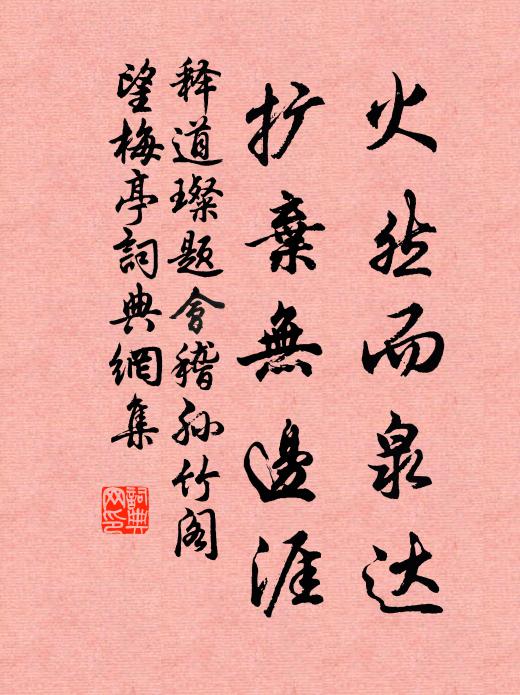 火然而泉达
扩弃無邊涯
释道璨题會稽孙竹阁
望梅亭詞典網集
詞典网印